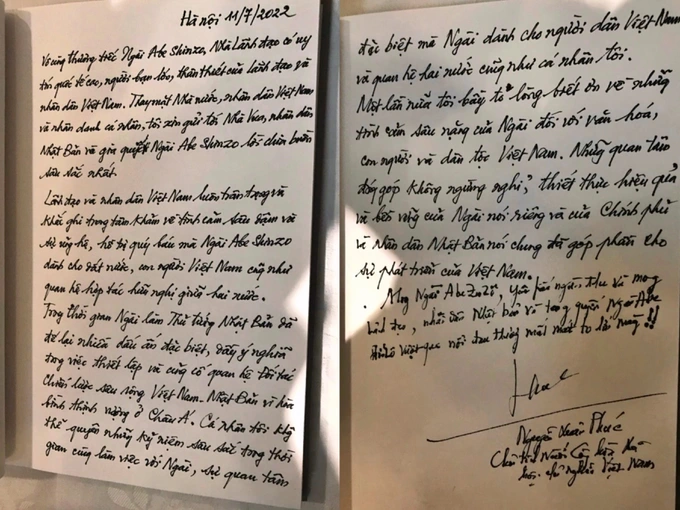 Hà Nội 11/7/2022
Vô cùng thương tiếc Ngài Abe Shinzo, Nhà Lãnh đạo có uy
tín quốc tế cao, người bạn lớn, thân thiết của Lãnh đạo và
nhân dân Việt Nam. Thay mặt Nhà nước, nhân dân Việt Nam
và nhân danh cá nhân, tôi xin gửi tới Nhà Vua, nhân dân
Nhật Bản và gia quyến Ngài Abe Shinzo lời chia buồn
sâu sắc nhất.
Lãnh đạo và nhân dân Việt Nam luôn trân trọng và
khắc ghi trong tâm khảm về tình cảm sâu đậm và
sự ủng hộ, hỗ trợ quý báu mà Ngài Abe Shinzo
dành cho đất nước, con người Việt Nam cũng như
quan hệ hợp tác hữu nghị giữa hai nước.
Trong thời gian Ngài làm Thủ tướng Nhật Bản đã
để lại nhiều dấu ấn đặc biệt, đầy ý nghĩa
trong việc thiết lập và củng cố quan hệ Đối tác
Chiến lược sâu rộng Việt Nam - Nhật Bản vì hòa
bình thịnh vượng ở Châu Á. Cá nhân tôi không
thể quên những kỷ niệm sâu sắc trong thời
gian cùng làm việc với Ngài, sự quan tâm
đặc biệt mà Ngài dành cho người dân Việt Nam
và quan hệ hai nước cũng như cá nhân tôi.
Một lần nữa tôi bày tỏ lòng biết ơn về những
tình cảm sâu nặng của Ngài đối với văn hóa,
con người và dân tộc Việt Nam. Những quan tâm
đóng góp không ngừng nghỉ, thiết thực hiệu quả
và bền vững của Ngài nói riêng và của Chính phủ
và nhân dân Nhật Bản nói chung đã góp phần cho
sự phát triển của Việt Nam.
Mong Ngài Abe yên nghỉ ngàn thu và mong
Lãnh đạo, nhân dân Nhật Bản và tang quyến Ngài Abe
Shinzo vượt qua nỗi đau thương mất mát to lớn này !!
Nguyễn Xuân Phúc
Chủ tịch Nước Cộng hòa Xã
hội chủ nghĩa Việt Nam